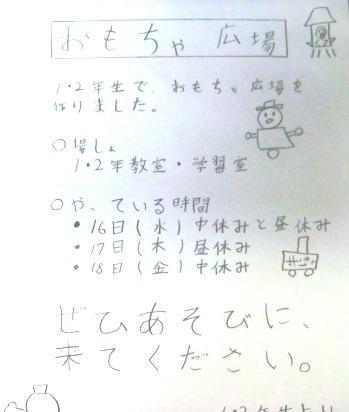 おもちゃ広場
1・2年生で、おもちゃ広場を
作りました。
○場しょ
1・2年教室・学習室
○やっている時間
・16日(水)中休みと昼休み
・17日(木)昼休み
・18日(金)中休み
ぜひあそびに、
来てください。
1・2年生より